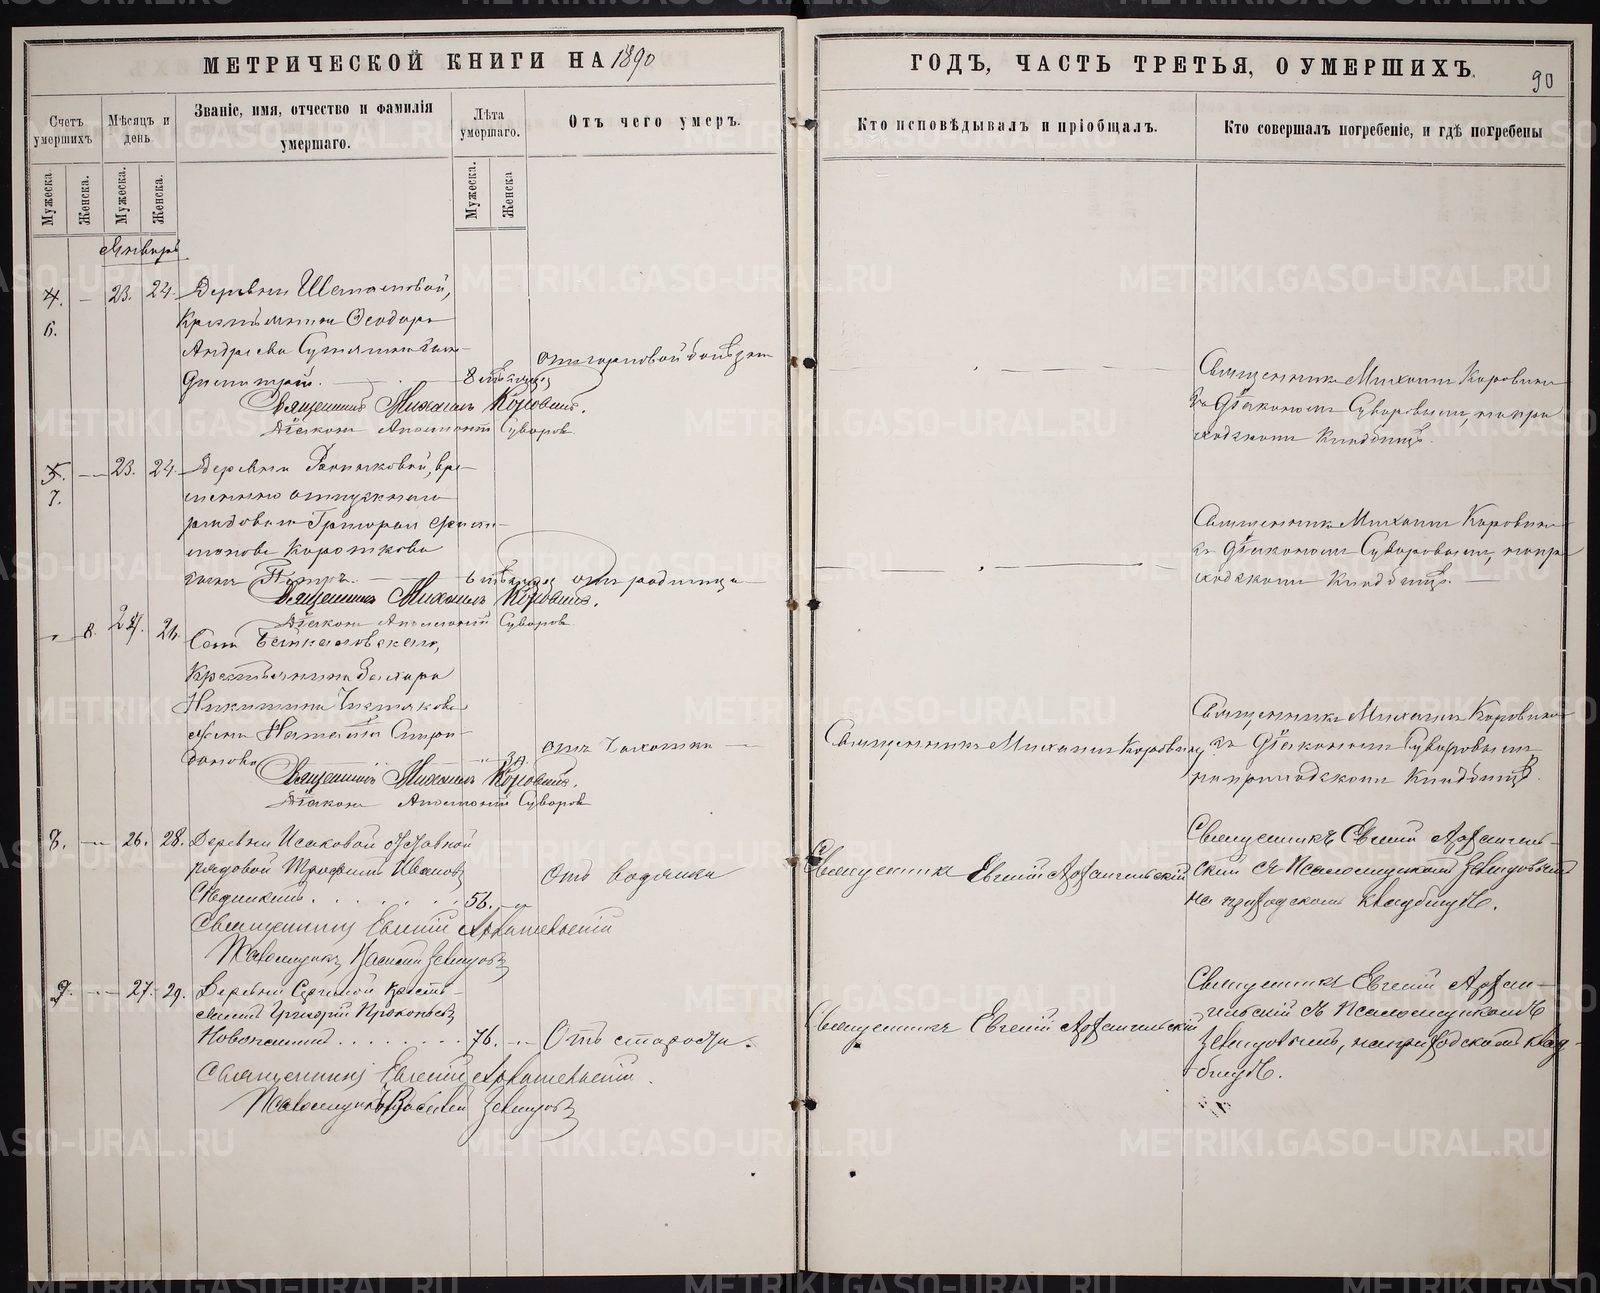 МЕТРИЧЕСКОЙ КНИГИ НА 1890
ГОДЪ, ЧАСТЬ ТРЕТЬЯ, О УМЕРШИХЪ.
90
Счетъ умершихъ
Мѣсяцъ и день
Званіе, имя, отчество и фамилія умершаго.
Лѣта умершаго.
Отъ чего умеръ.
Кто исповѣдывалъ и пріобщалъ.
Кто совершалъ погребеніе, и гдѣ погребены
Мужеска.
Женска.
Мужеска.
Женска.
Мужеска.
Женска
Январь
4. — 23. 24.
6.
Деревни
Крестьянина Ѳеодора
Андреева
Димитрій. — 8 мѣсяцъ
Священникъ Михаилъ Коровинъ.
Діаконъ Суворовъ
Священникъ Михаилъ Коровинъ
съ Діакономъ Суворовымъ, на при
ходскомъ кладбищѣ.
5. — 23. 24.
7.
Деревни вре-
менно отпускнаго
рядоваго Григорія Фили-
монова Короткова
сынъ Петръ. — 6 мѣсяцъ отъ родимца —
Священникъ Михаилъ Коровинъ.
Діаконъ Суворовъ
Священникъ Михаилъ Коровинъ
съ Діакономъ Суворовымъ, на при
ходскомъ кладбищѣ. —
8. 24. 26.
Села Байкаловскаго,
Крестьянина Захара
Никитина
жена Наталія Спири-
донова 30. отъ чахотки —
Священникъ Михаилъ Коровинъ.
Діаконъ Суворовъ
Священникъ Михаилъ Коровинъ
Священникъ Михаилъ Коровинъ
съ Діакономъ Суворовымъ
на приходскомъ кладбищѣ.
8. — 26. 28.
Деревни Исаковой отставной
рядовой Трофимъ Ивановъ
56. — Отъ водянки
Священникъ Евгеній Архангельскій
Псаломщикъ Василій
Священникъ Евгеній Архангельскій
Священникъ Евгеній Архангель-
скій съ Псаломщикомъ
на приходскомъ кладбищѣ.
9. — 27. 29.
Деревни кресть-
янинъ Григорій Прокопьевъ
76. — Отъ старости.
Священникъ Евгеній Архангельскій.
Псаломщикъ Василій
Священникъ Евгеній Архангельскій
Священникъ Евгеній Архан-
гельскій съ Псаломщикомъ
на приходскомъ клад-
бищѣ.
METRIKI.GASO-URAL.RU